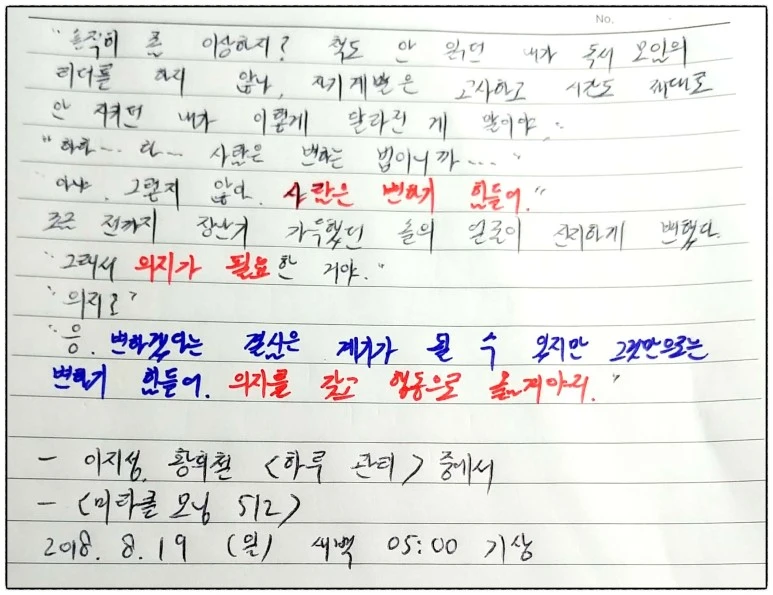 No.
"솔직히 좀 이상하지? 책도 안 읽던 내가 독서 모임의
리더를 하지 않나, 자기계발은 고사하고 시간도 제대로
안 지키던 내가 이렇게 달라진 게 말이야."
"하하… 다… 사람은 변하는 법이니까…."
"아냐. 그렇지 않아. 사람은 변하기 힘들어."
조금 전까지 장난기 가득했던 솔의 얼굴이 진지하게 변했다.
"그래서 의지가 필요한 거야."
"의지로?"
"응. 변하겠다는 결심은 계기가 될 수 있지만 그것만으로는
변하기 힘들어. 의지를 갖고 행동으로 옮겨야지."
- 이지성, 황희철 <하루 관리> 중에서
- <미라클 모닝 512>
2018. 8. 19 (일) 새벽 05:00 기상